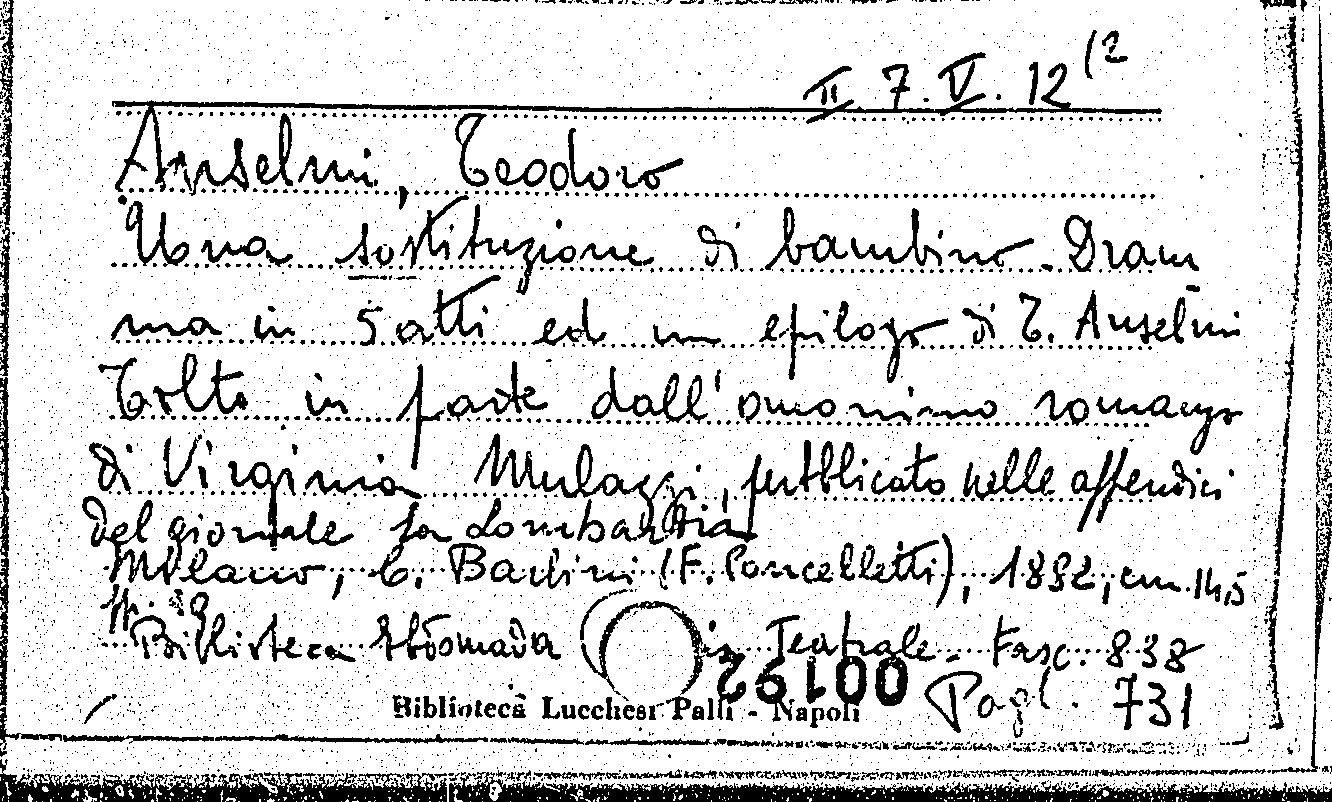 II. 7. V. 12 (2
Anselmi, Teodoro
Una sostituzione di bambino. Dram
ma in 5 atti ed un epilogo di T. Anselmi
Tolto in parte dall'omonimo romanzo
di Virginia Mulazzi, pubblicato nelle appendici
del giornale La Lombardia
Milano, C. Barbini (F. Poncelletti), 1892, cm. 14,5
pp.
Biblioteca Ebdomada ia Teatrale - Fasc. 838
00192
Biblioteca Lucchesi Palli - Napoli Pagl. 731